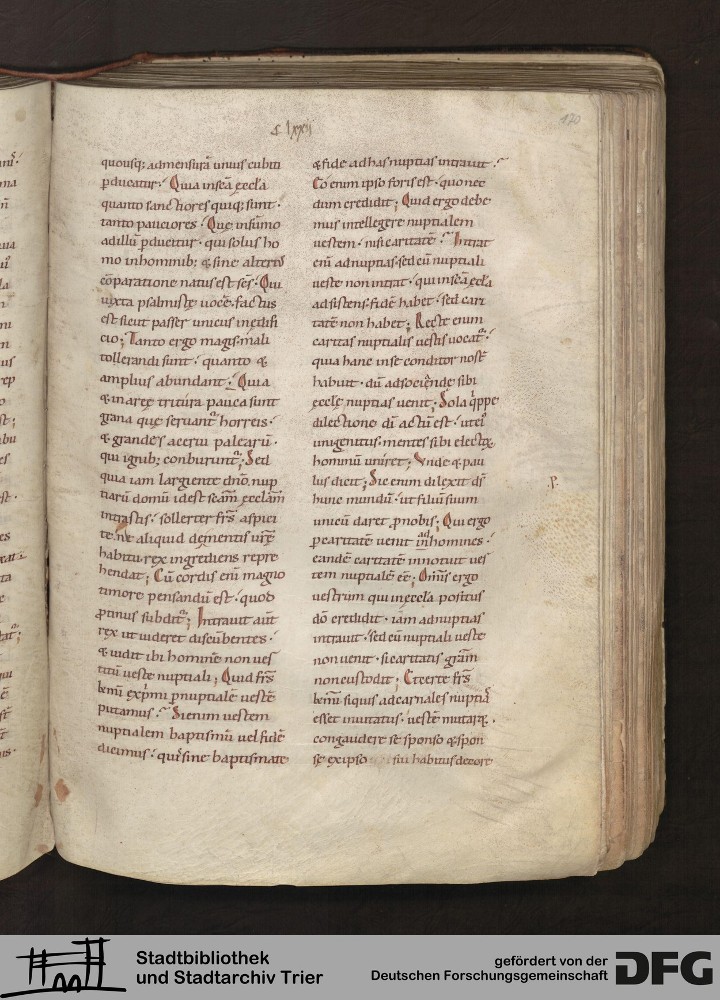 170
quousq; admensurā unius cubiti
ꝑducatur·́ Quia insc̄a eccl̄a
quanto sanctiores quiq; sunt·
tanto pauciores· Que insūmo
adillū ꝑducitur· qui solus ho
mo inhominib: & sine alteriꝰ
cōparatione natus est sc̄s· Qui
iuxta psalmistę uocē· factus
est sicut passer unicus inędifi
cio; Tanto ergo magis mali
tollerandi sunt· quanto &
amplius abundant; Quia
& inarea tritura pauca sunt
grana que seruant᷑ horreis·
& grandes acerui palearū·
qui ignib; conburunt᷑; Sed
quia iam largiente dn̄o nup
tiarū domū idest sc̄am eccl̄am
intrastis· sollerter fr̄s aspici
te· ne aliquid dementis ur̄ę
habitu rex ingrediens repre
hendat; Cū cordis eni᷑ magno
timore pensandū est· quod
ꝓtinus subdit᷑; Intrauit aūt
rex ut uideret discūbentes·
& uidit ibi hominē non ues
titū ueste nuptiali; Quid fr̄s
kmi᷑ exp̄mi ꝑ nuptialē uestē
putamus·́ Si enim uestem
nuptialem baptismū uel fidē
dicimus· quis sine baptismate
& fide ad has nuptias intrauit·́
Eo enim ipso foris est· quo nec
dum credidit; Quid ergo debe
mus intellegere nuptialem
uestem· nisi caritatē·́ Intrat
eni᷑ ad nuptias· sed cū nuptiali
ueste non intrat· qui insc̄a eccl̄a
adsistens· fidē habet· sed cari
tatē non habet; Recte enim
caritas nuptialis uestis uocat᷑·
quia hanc inse conditor nost̄
habuit· dū ad sociēnde sibi
eccl̄ę nuptias uenit; Sola q̇ppe
dilectione dī actū est· ut eiꝰ
unigenitus mentes sibi electoꝝ
hominū uniret; Vnde & pau
lus dicit; Sic enim dilexit ds̄
hunc mundū· ut filiū suum
unicū daret ꝓnobis; Qui ergo
ꝑ caritatē uenit ad homines·
eandē caritatē innotuit ues
tem nuptialē ēē; Omīs ergo
uestrum qui in eccl̄a positus
dō credidit· iam ad nuptias
intrauit· sed cū nuptiali ueste
non uenit· si caritatis gr̄am
non custodit; Et certe fr̄s
kmi᷑ siquis ad carnales nuptiaˢ
esset inuitatus· uestē mutar&·
congaudere se sponso & spon
se ex ipso sui habitus decore
Stadtbibliothek
und Stadtarchiv Trier
gefördert von der
Deutschen Forschungsgemeinschaft
DFG